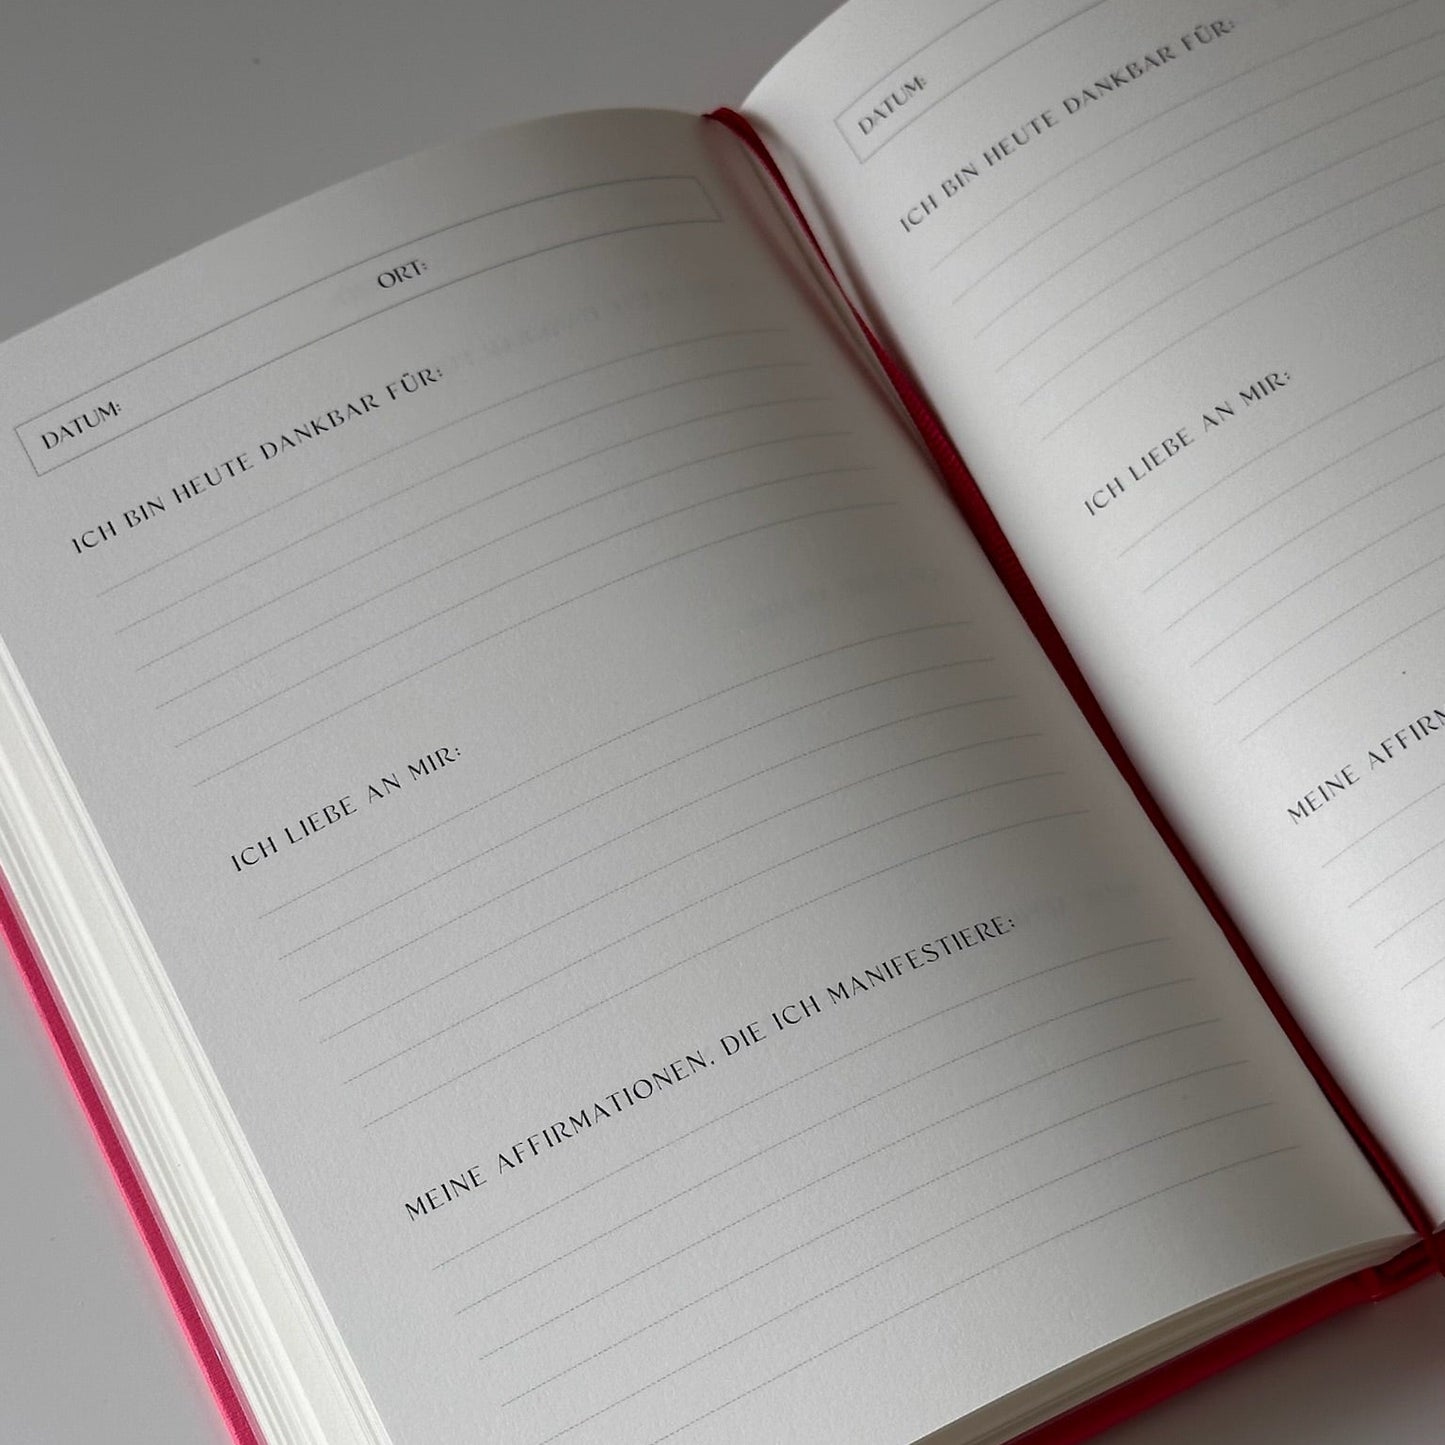 DATUM: ORT:
ICH BIN HEUTE DANKBAR FÜR:
ICH LIEBE AN MIR:
MEINE AFFIRMATIONEN, DIE ICH MANIFESTIERE:
DATUM:
ICH BIN HEUTE DANKBAR FÜR:
ICH LIEBE AN MIR:
MEINE